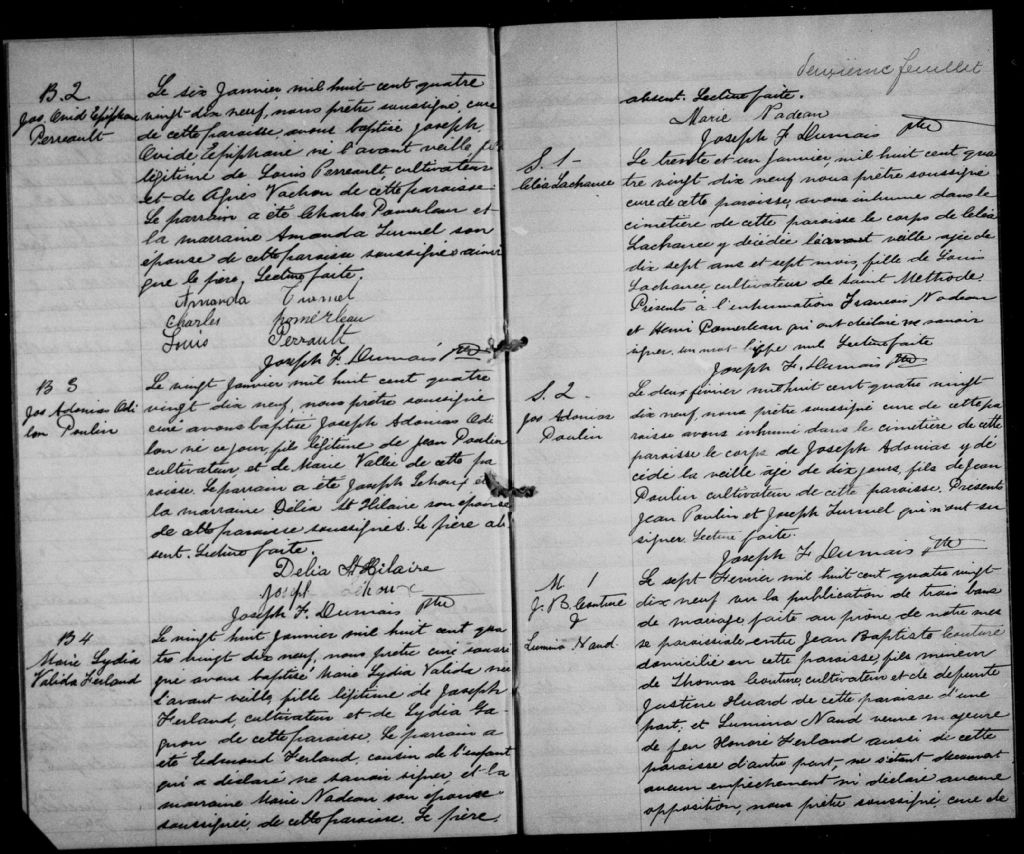 B. 2
Jos. Ovid Epiphane
Perreault
Le six Janvier mil huit cent quatre
vingt-dix neuf, nous prêtre soussigné curé
de cette paroisse, avons baptisé Joseph
Ovide Epiphane né l'avant veille, fils
légitime de Louis Perreault, cultivateur
et de Agnès Vachon de cette paroisse.
Le parrain a été Charles Pomerleau et
la marraine Amanda Turmel son
épouse de cette paroisse soussignés ainsi
que le père. Lecture faite.
Amanda Turmel
Charles pomerleau
Louis Perrault
Joseph F. Dumais ptre
B 3
Jos Adonias Odi
lon Poulin
Le vingt Janvier mil huit cent quatre
vingt dix neuf, nous prêtre soussigné
curé avons baptisé Joseph Adonias Odi
lon né ce jour, fils légitime de Jean Poulin
cultivateur et de Marie Vallée de cette pa
roisse. Le parrain a été Joseph Lehoux et
la marraine Délia St Hilaire son épouse
de cette paroisse soussignés. Le père ab
sent. Lecture faite.
Delia St Hilaire
Joseph Lehoux
Joseph F. Dumais ptre
B 4
Marie Lydia
Valida Ferland
Le vingt huit Janvier mil huit cent qua
tre vingt dix neuf, nous prêtre curé soussi
gné avons baptisé Marie Lydia Valida née
l'avant veille, fille légitime de Joseph
Ferland, cultivateur et de Lydia Ga
gnon de cette paroisse. Le parrain a
été Edmond Ferland, cousin de l'enfant
qui a déclaré ne savoir signer et la
marraine Marie Nadeau son épouse
soussignée, de cette paroisse. Le père
deuxième feuillet
absent. Lecture faite.
Marie Nadeau
Joseph F. Dumais ptre
S. 1-
Cléa Lachance
Le trente et un Janvier, mil huit cent qua
tre vingt dix neuf nous prêtre soussigné
curé de cette paroisse, avons inhumé dans le
cimetière de cette paroisse le corps de Cléa
Lachance y décédée l'avant veille agée de
dix sept ans et sept mois, fille de Louis
Lachance, cultivateur de Saint Méthode.
Présents à l'inhumation Francois Nadeau
et Henri Pomerleau qui ont déclaré ne savoir
signer. un mot nul Lecture faite
Joseph F. Dumais ptre
S. 2-
Jos Adonias
Poulin
Le deux février mil huit cent quatre vingt
dix neuf, nous prêtre soussigné curé de cette pa
roisse avons inhumé dans le cimetière de cette
paroisse le corps de Joseph Adonias y dé
cédé la veille âgé de dix jours, fils de Jean
Poulin cultivateur de cette paroisse. Présents
Jean Poulin et Joseph Turmel qui n'ont su
signer. Lecture faite.
Joseph F. Dumais ptre
M 1
J. B. Couture
&
Lumina Naud
Le sept Fevrier mil huit cent quatre vingt
dix neuf vu la publication de trois bans
de mariage faite au prône de notre mes
se paroissiale entre Jean Baptiste Couture
domicilié en cette paroisse, fils mineur
de Thomas Couture, cultivateur et de défunte
Justine Huard de cette paroisse d'une
part, et Lumina Naud veuve majeure
de feu Honoré Ferland aussi de cette
paroisse d'autre part, ne s'étant découvert
aucun empêchement ni déclaré aucune
opposition, nous prêtre soussigné, curé de